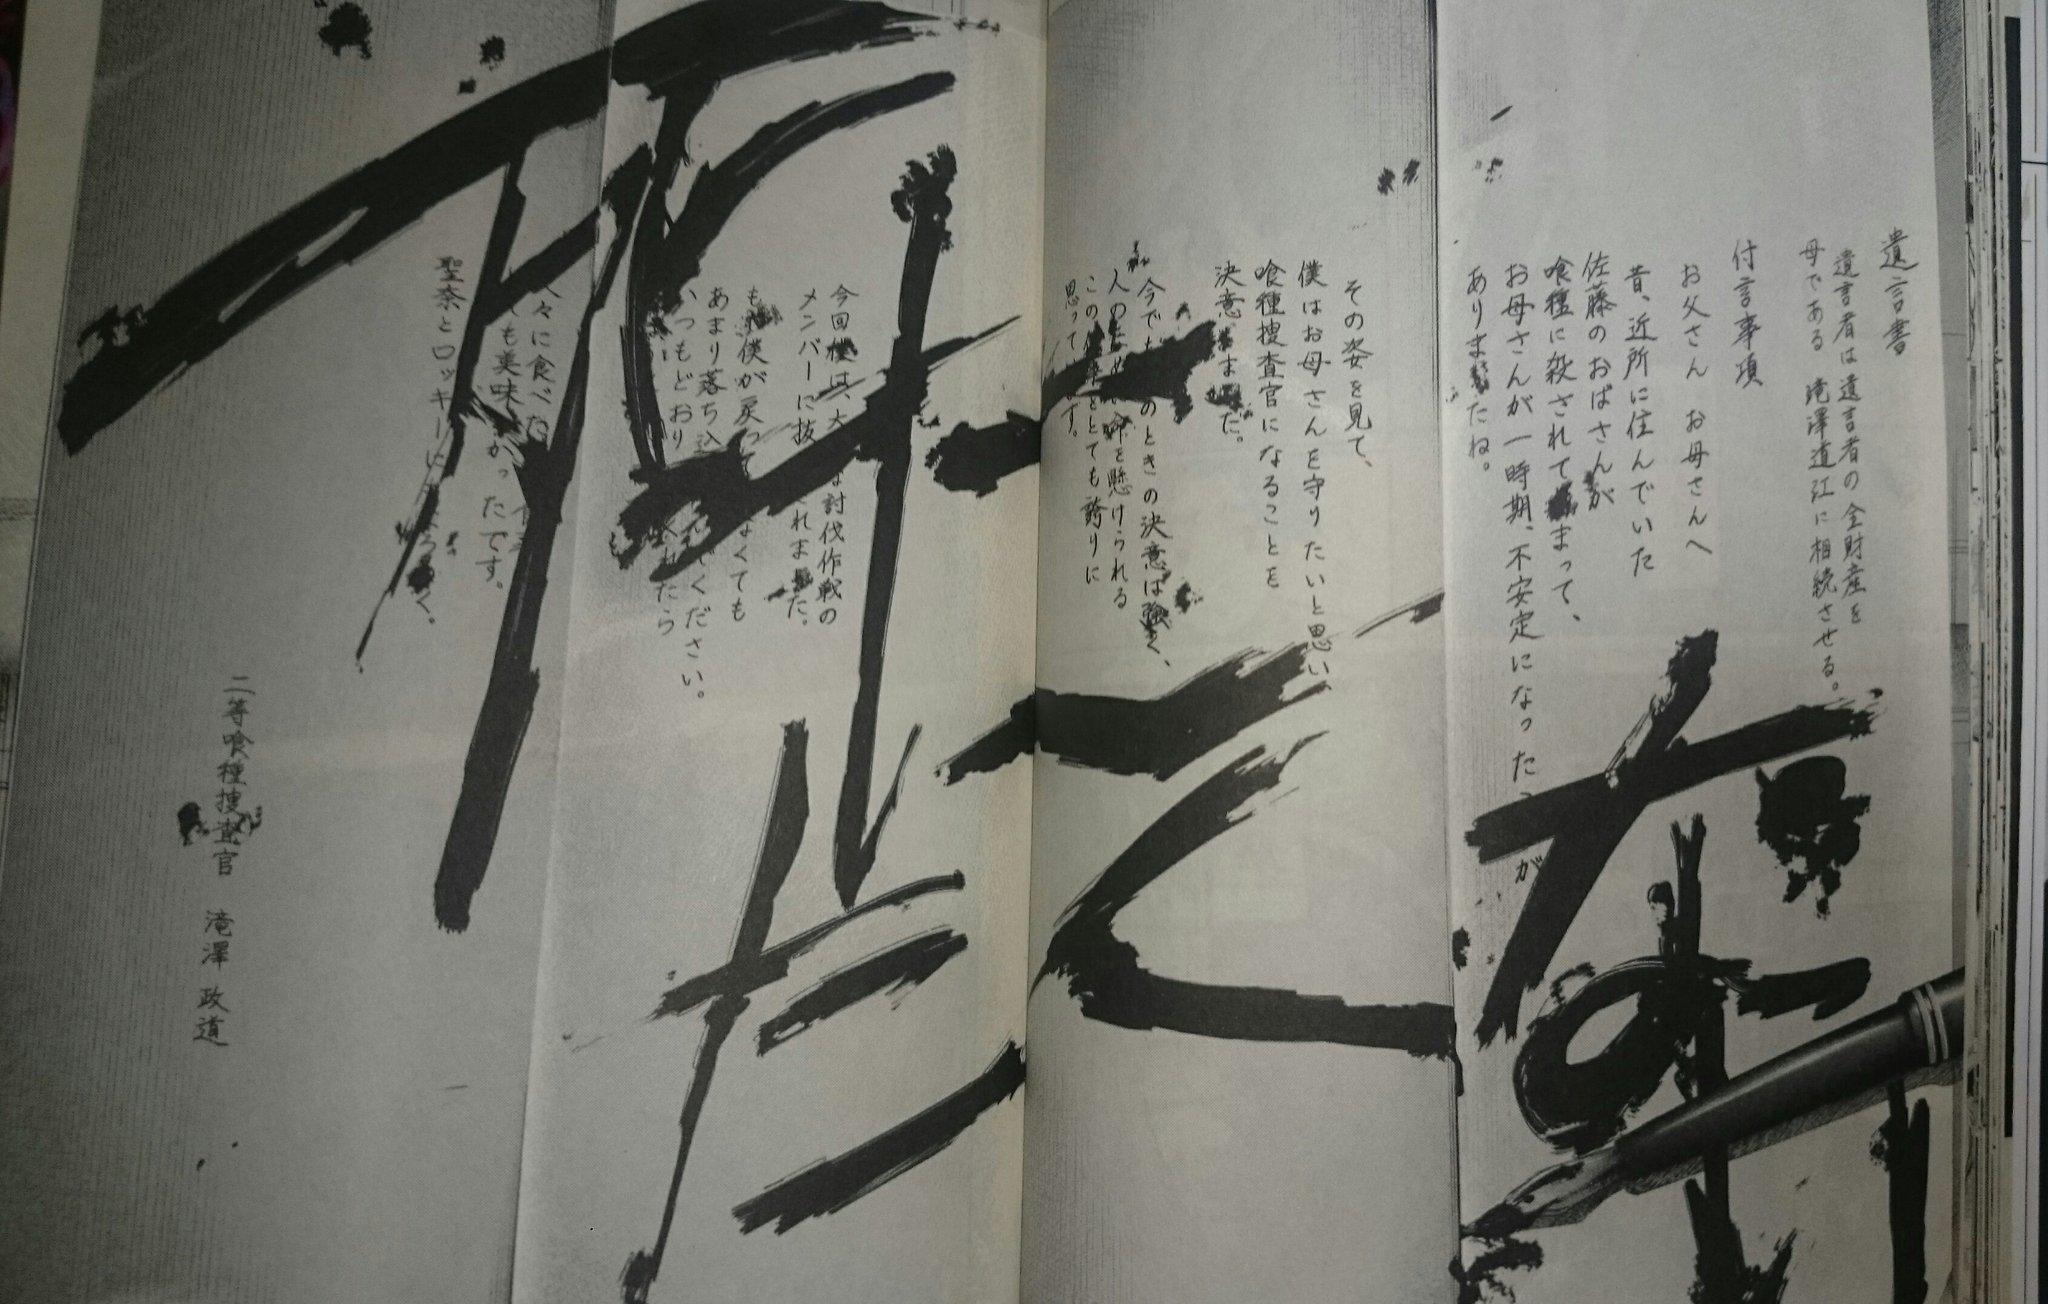 遺言書
遺言者は遺言者の全財産を
母である 滝澤道江に相続させる。
付言事項
お父さん お母さんへ
昔、近所に住んでいた
佐藤のおばさんが
喰種に殺されてまって、
お母さんが一時期、不安定になったが
ありましたね。
その姿を見て、
僕はお母さんを守りたいと思い、
喰種捜査官になることを
決意ました。
今でものときの決意は強く、
人のため命を懸けられる
この仕事をとても誇りに
思ってます。
今回は、大な討伐作戦の
メンバーに抜れました。
も僕が戻ってなくても
あまり落ち込でください。
いつもどおりくれたら
人々に食べた
ても美味かったです。
聖奈とロッキーによろく。
二等喰種捜査官 滝澤 政道
死にたくない